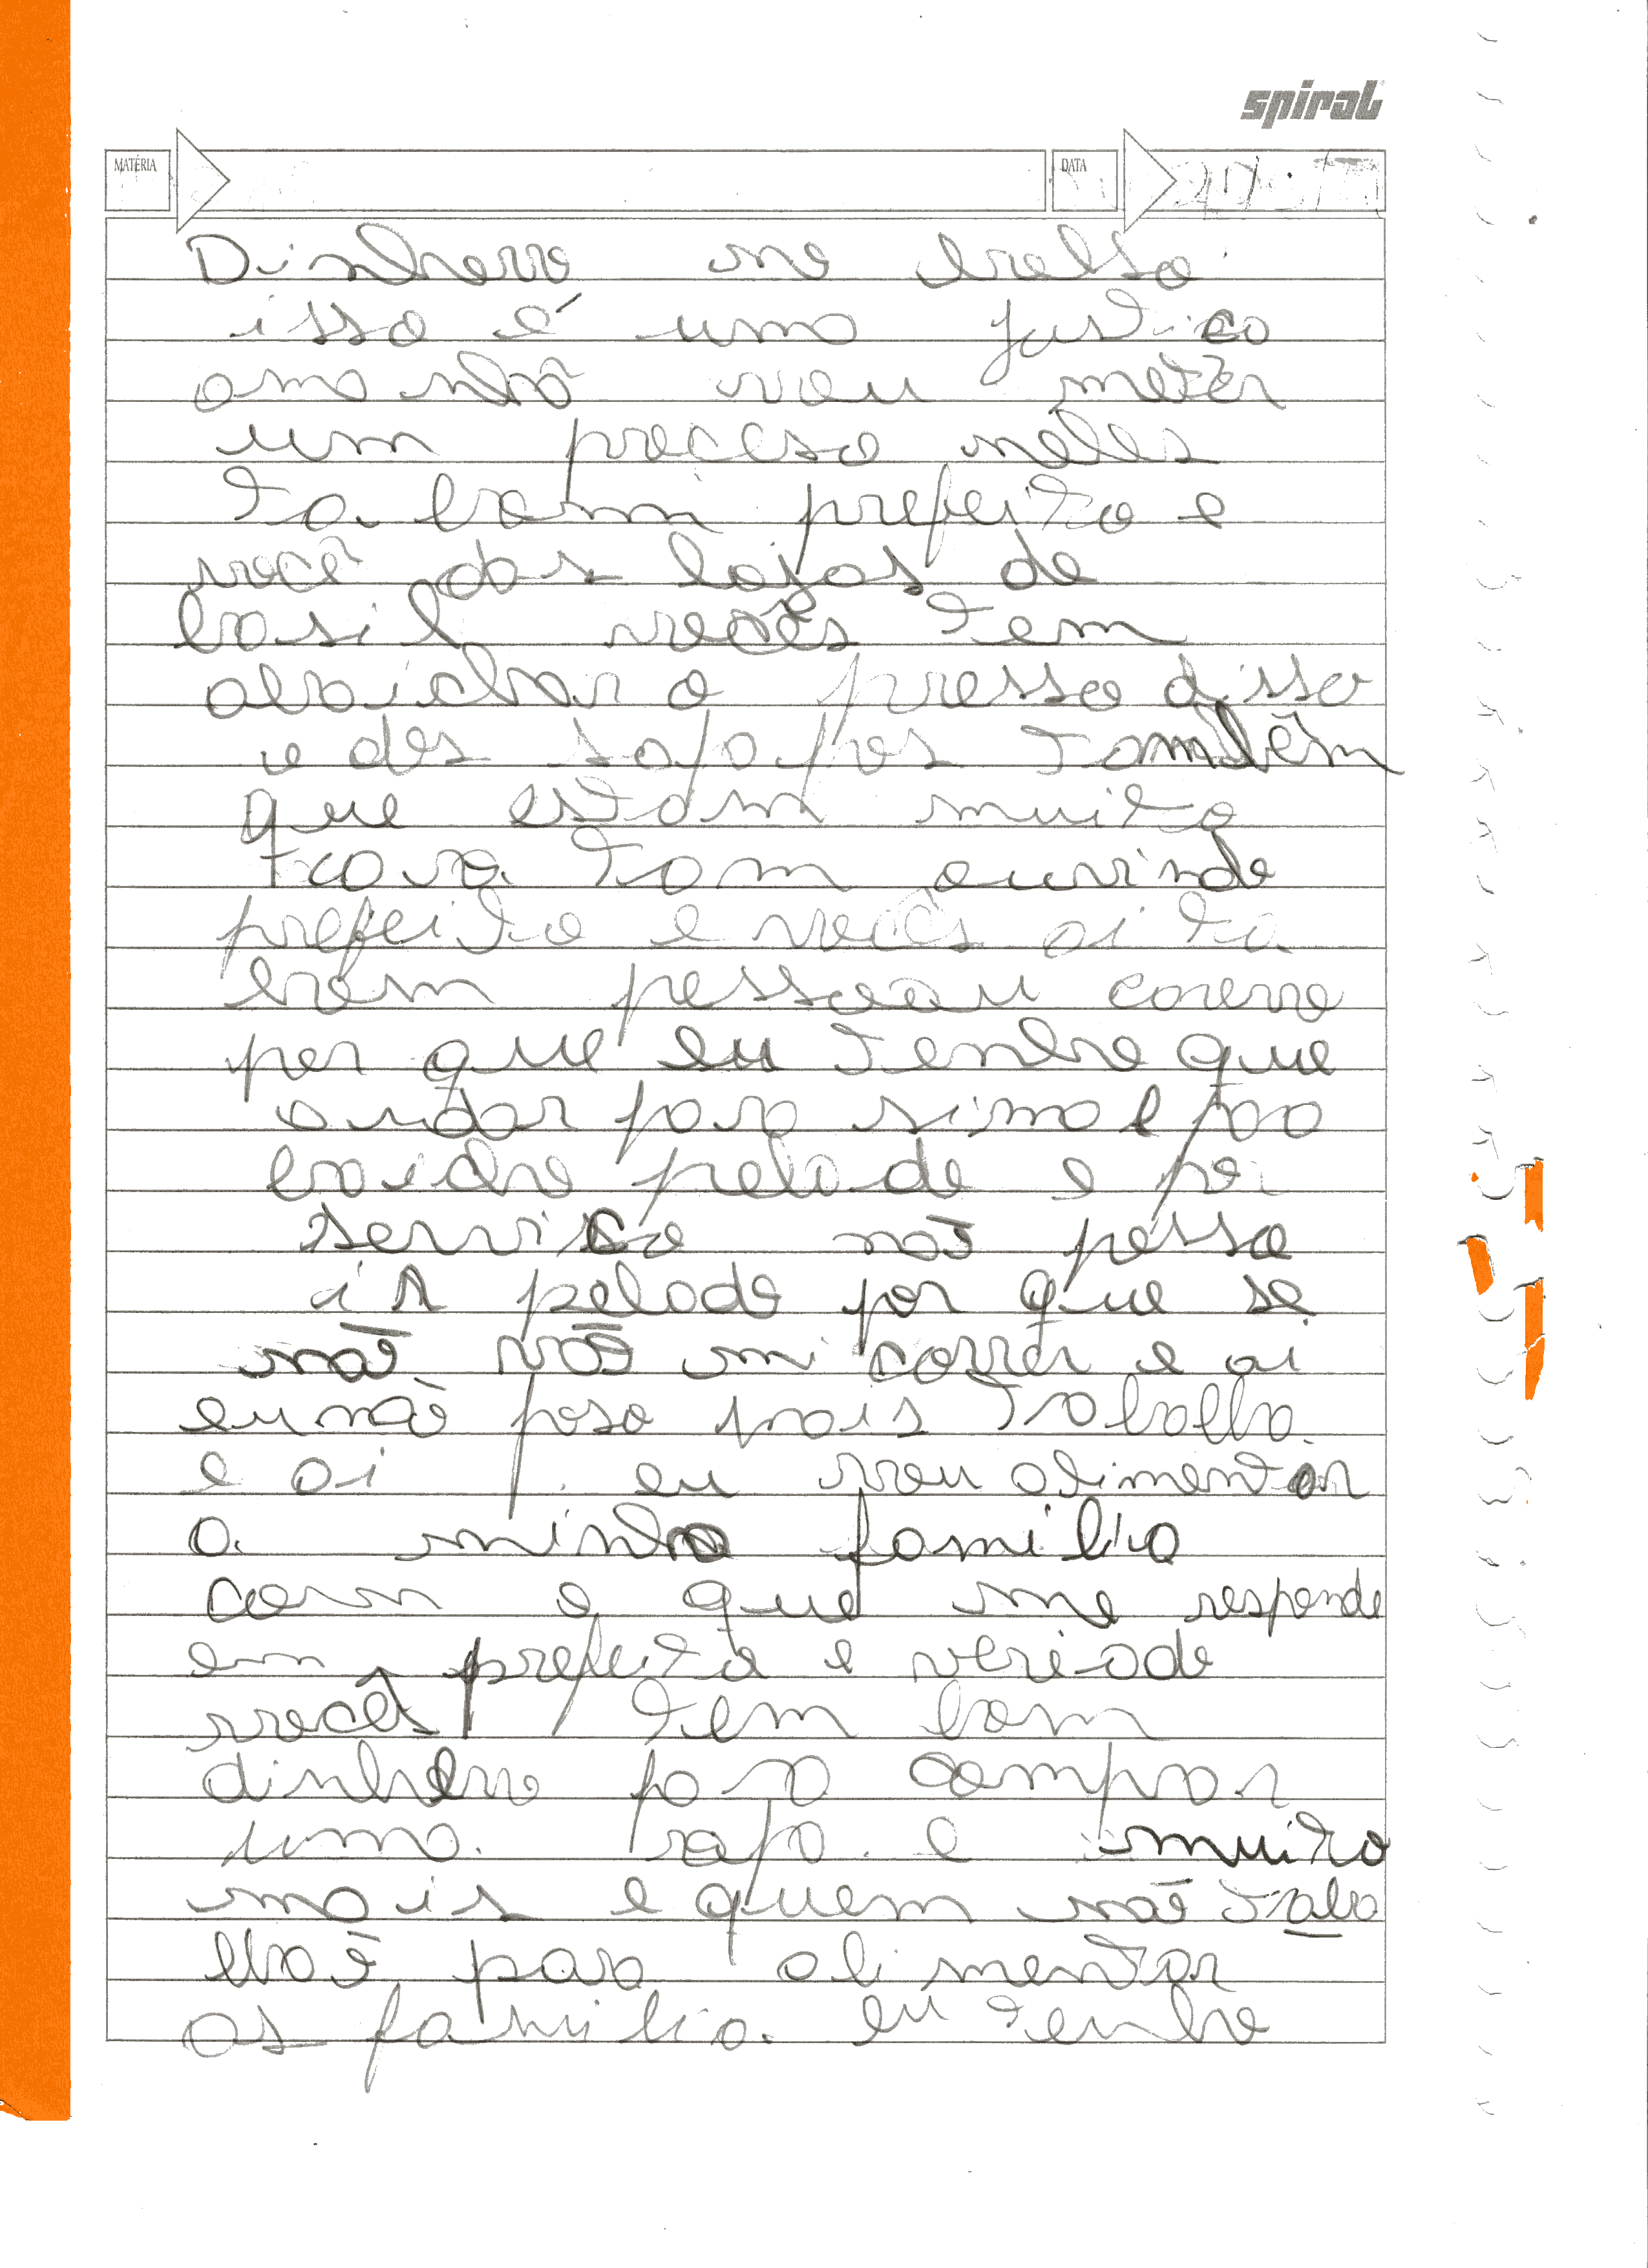 spiral
MATÉRIA DATA
Dinherro no bolso
isso é uma justico
amanhã vou meter
um proceso neles
ta bom prefeito e
você das lojas de
basil vocês tem
abaichar o presso disso
e dos safafos também
que estam muito
tam ouvindo
prefeito e vocês ai ta
bom pessoau corerro
por que eu tenho que
andar para sima e pao
baicho pelado e po
servico não posso
ir pelado por que se
não vão mi correr e ai
eu não poso mais trabalha
e ai eu vou alimentar
a minha familia
com o que me responde
em prefeito e veriado
vocês tem bom
dinherro para compror
uma e muito
mais e quem não traba
lha é para alimentar
as familia. eu tenho